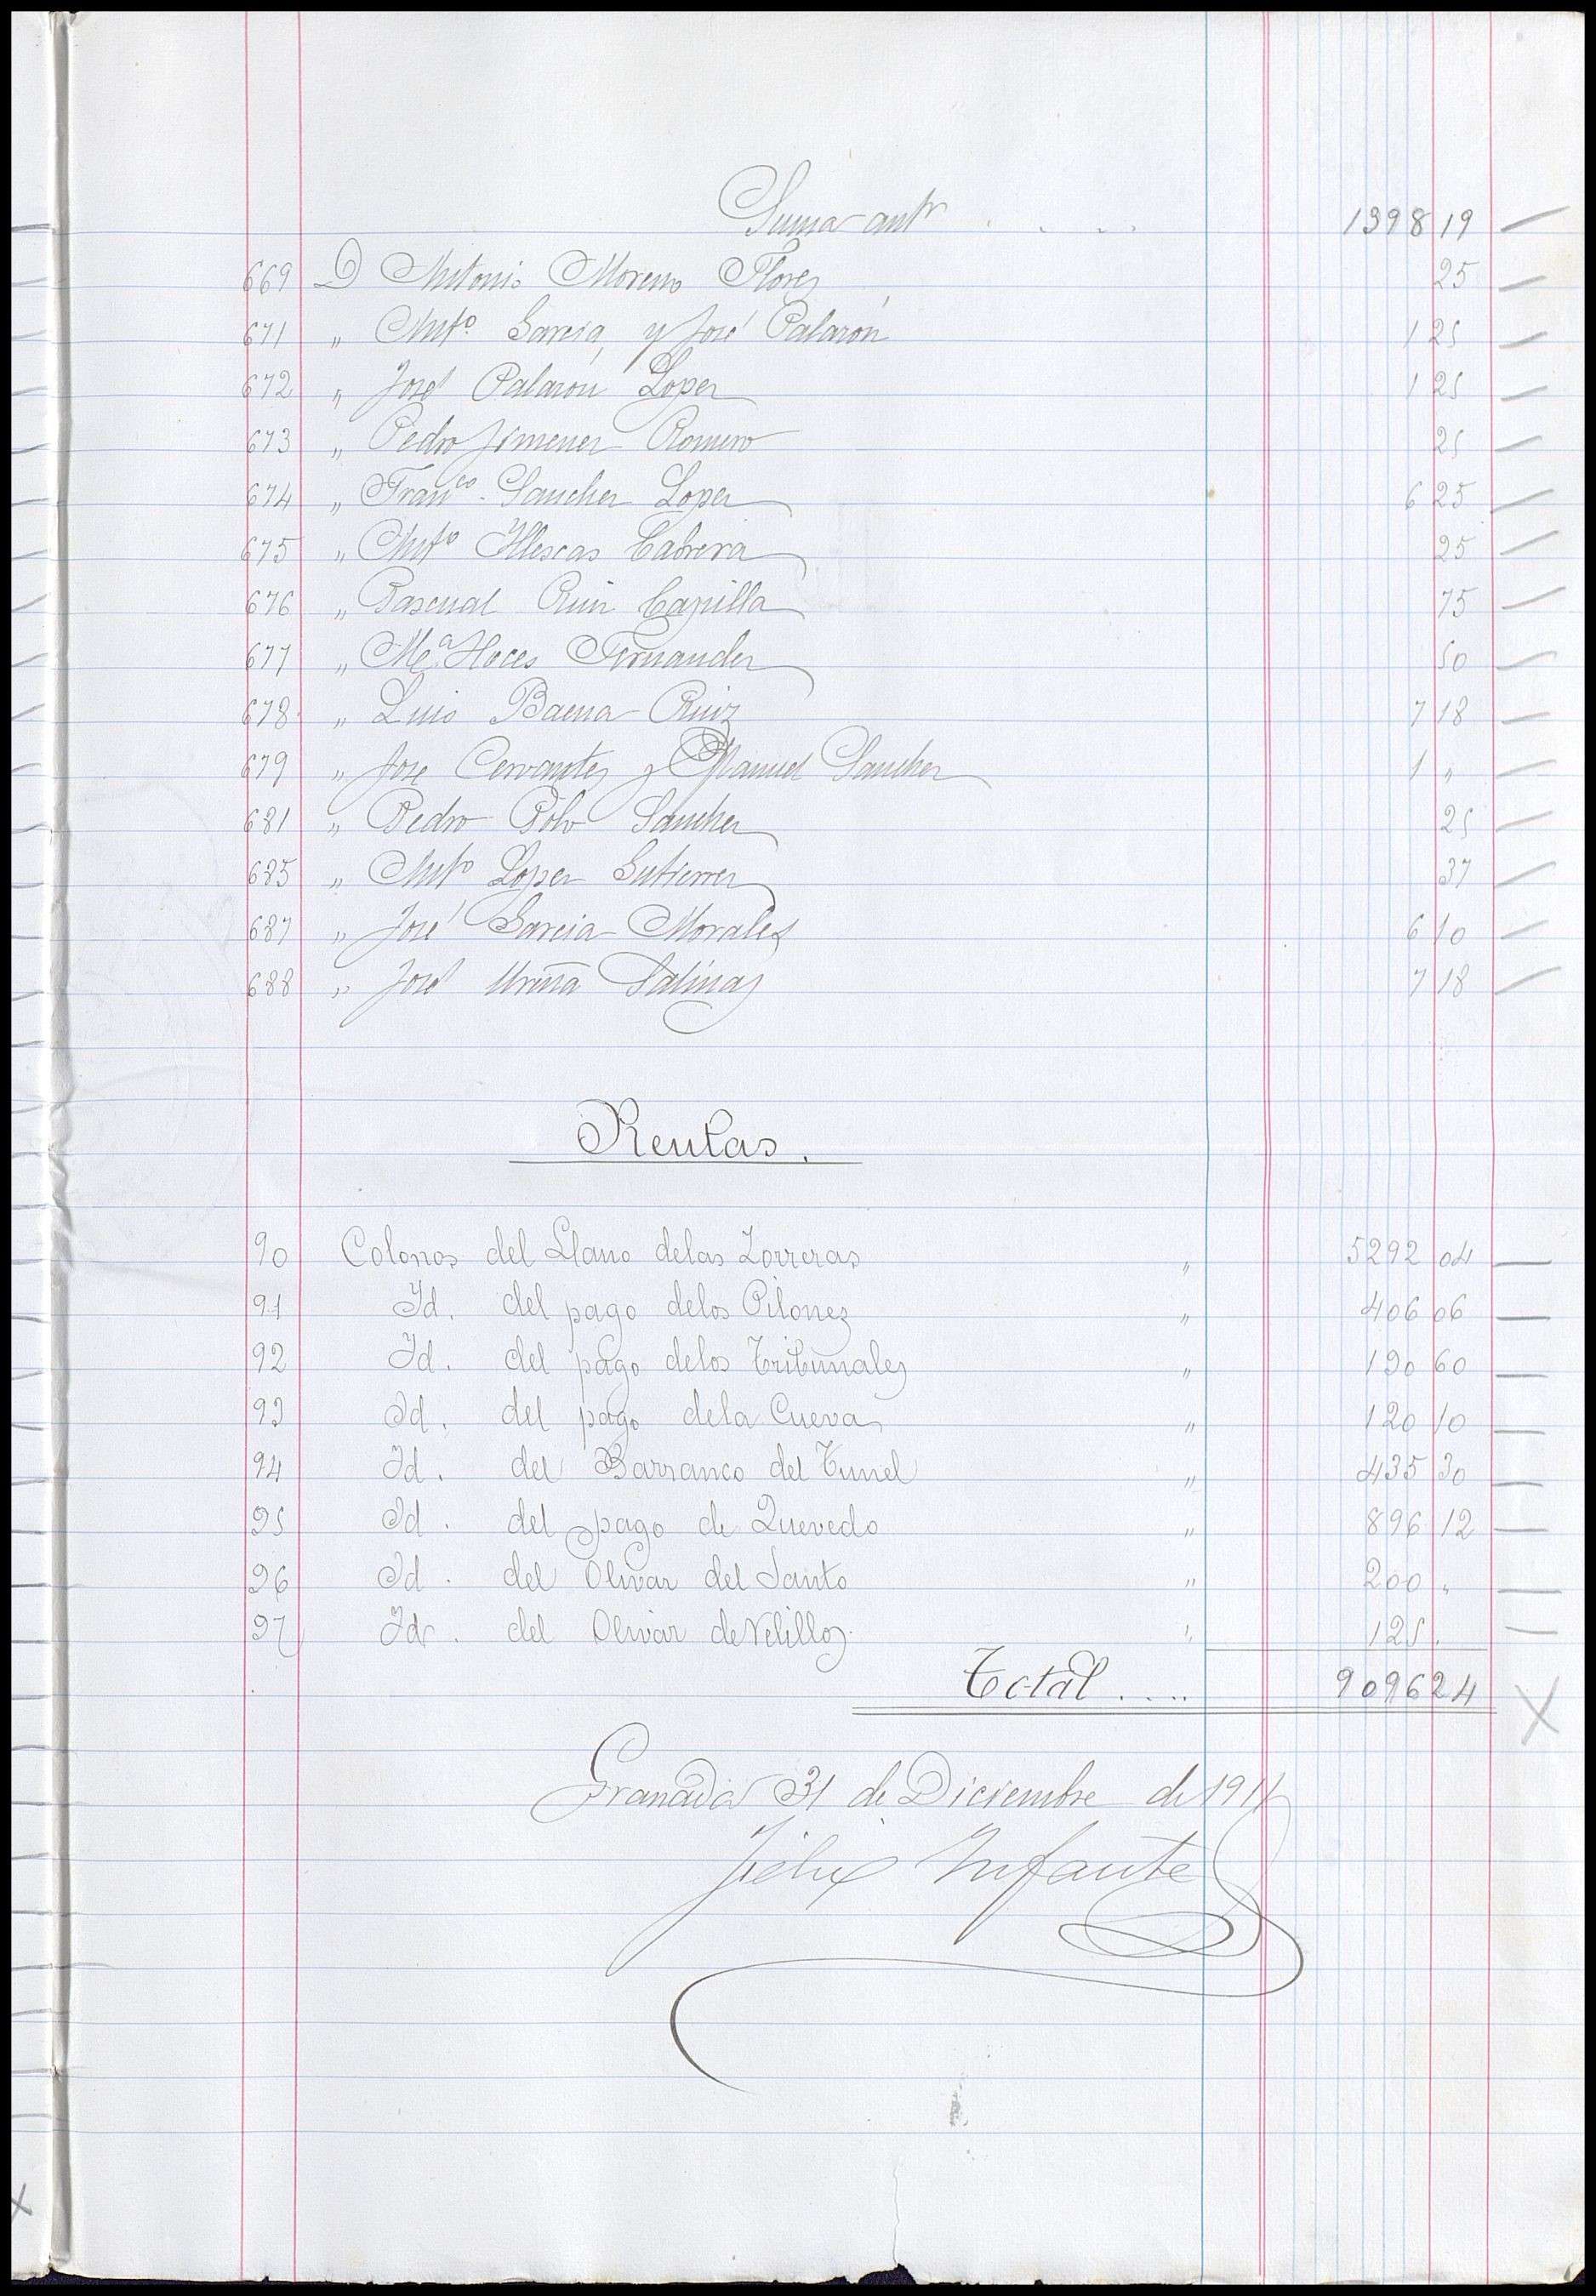 Suma antr . . . .  1398 19
669 D Antonio Moreno Flores 25
671 " Antº Garcia, y José Palazón 1 25
672 " José Palazón Lopez 1 25
673 " Pedro Jimenez Romero 25
674 " Franco. Sanchez Lopez 6 25
675 " Antº Illescas Cabrera 25
676 " Pascual Ruiz Capilla 75
677 " Mª Hoces Fernandez 50
678 " Luis Baena Ruiz 7 18
679 " Jose Cervantes y Manuel Sanchez 1 "
681 " Pedro Polo Sanchez 25
685 " Antº Lopez Gutierrez 37
687 " José Garcia Morales 6 10
688 " José Ureña Salinas 7 18
Rentas.
90 Colonos del Llano delas Zorreras " 5292 04
91 Id. del pago delos Pilones " 406 06
92 Id. del pago delos Tribunales " 190 60
93 Id. del pago dela Cueva " 120 10
94 Id. del Barranco del Tunel " 435 30
95 Id. del pago de Quevedo " 896 12
96 Id. del Olivar del Santo " 200 "
97 Id. del Olivar de Velillos " 125 .
Total .... 9096 24
Granada 31 de Diciembre de 1911
Félix Infante